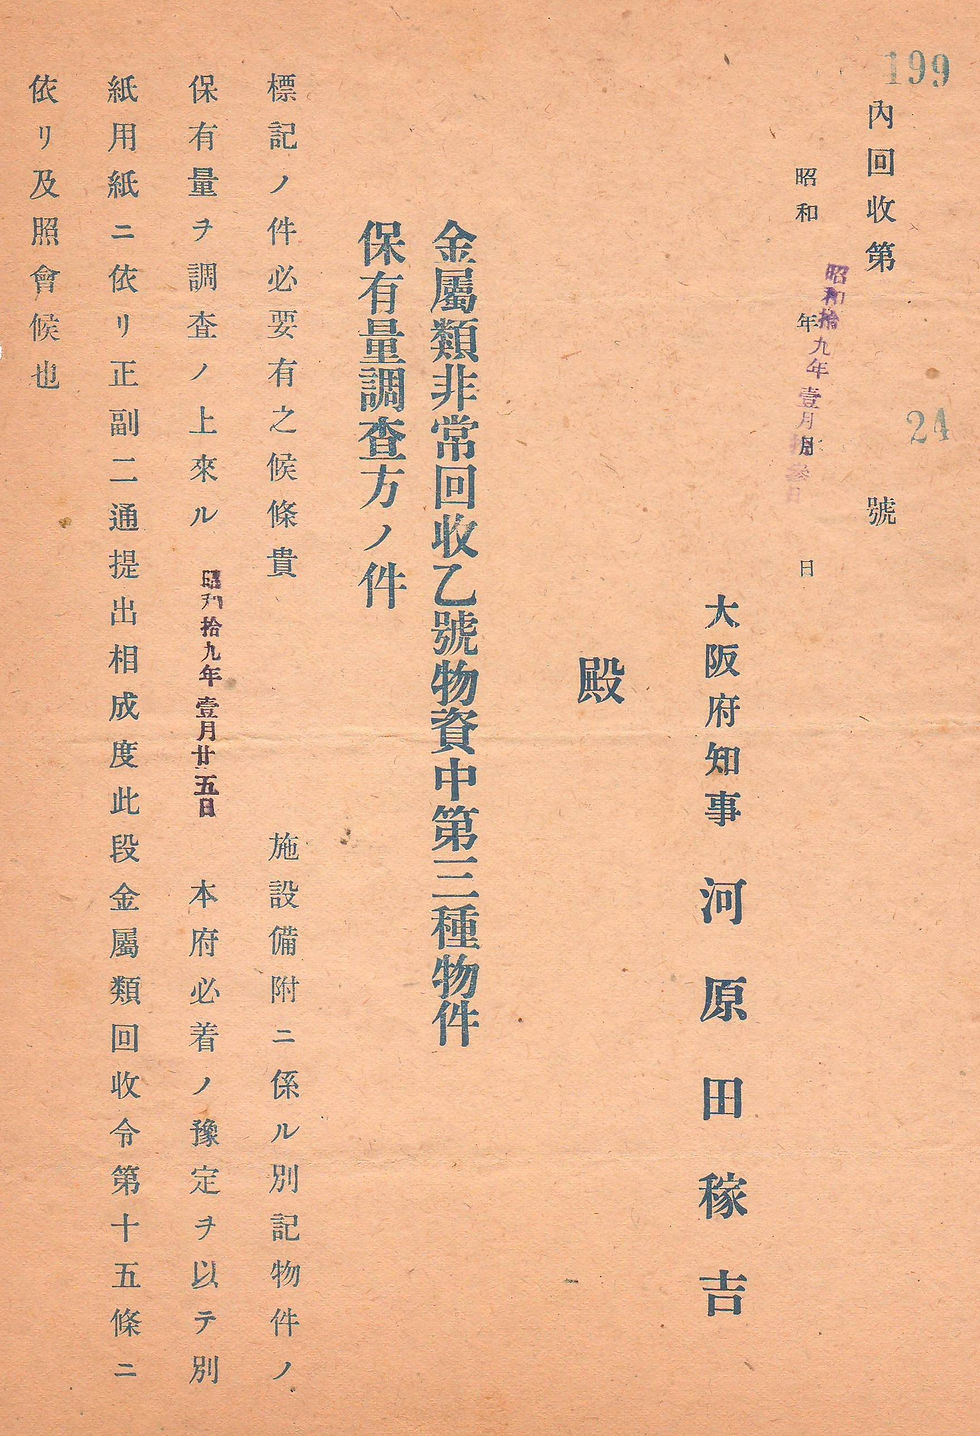 199
內回收第
24
號
昭和 年 月 日
昭和拾九年壹月拾参日
大阪府知事 河原田稼吉
殿
金屬類非常回收乙號物資中第三種物件
保有量調査方ノ件
標記ノ件必要有之候條貴 施設備附ニ係ル別記物件ノ
保有量ヲ調査ノ上來ル 昭和拾九年壹月廿五日 本府必着ノ豫定ヲ以テ別
紙用紙ニ依リ正副二通提出相成度此段金屬類回收令第十五條ニ
依リ及照會候也